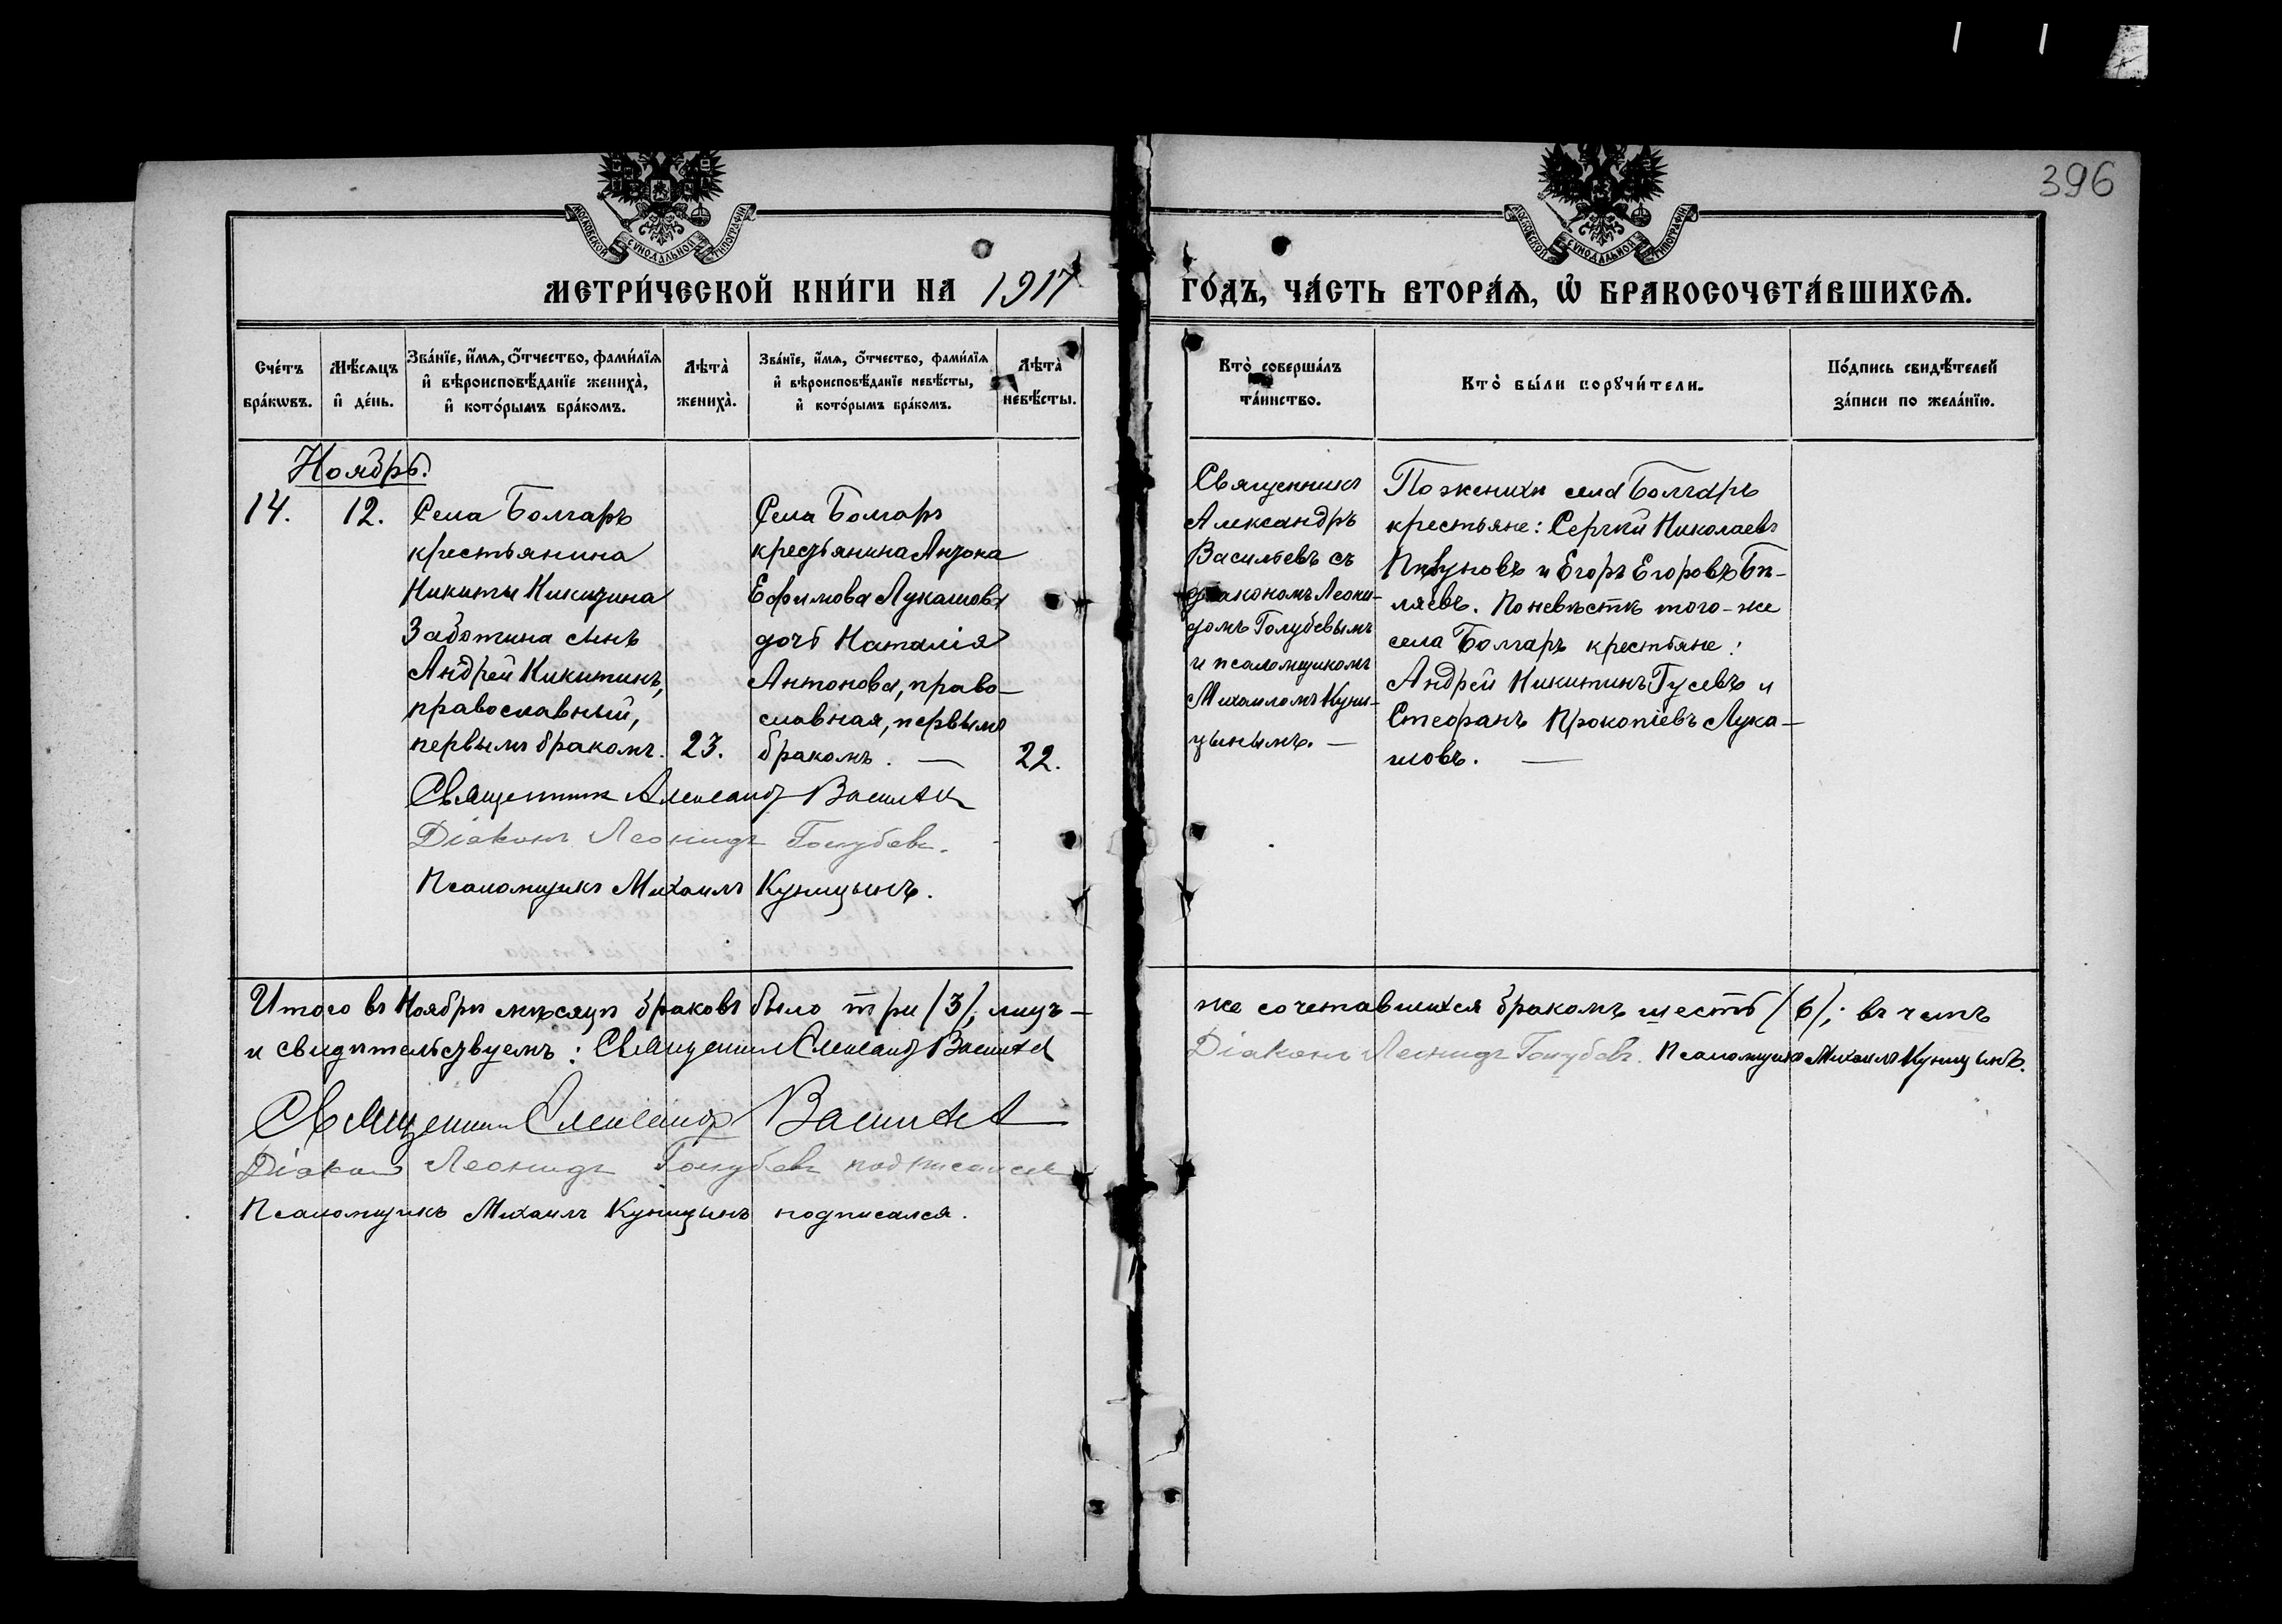 396
МОСКОВСКОЙ СѴНОДАЛЬНОЙ ТИПОГРАФІИ
МОСКОВСКОЙ СѴНОДАЛЬНОЙ ТИПОГРАФІИ
МЕТРИ́ЧЕСКОЙ КНИ́ГИ НА 1917 ГО́ДЪ, ЧА́СТЬ ВТОРА́Ѧ, Ѡ҆ БРАКОСОЧЕТА́ВШИХСѦ.
Сче́тъ
бра́кѡвъ.
Мѣ́сѧцъ
и҆ де́нь.
Зва́нїе, и҆́мѧ, ѻ҆́тчество, фами́лїѧ
и҆ вѣроисповѣ́данїе жениха̀,
и҆ кото́рымъ бра́комъ.
Лѣта̀
жениха̀.
Зва́нїе, и҆́мѧ, ѻ҆́тчество, фами́лїѧ
и҆ вѣроисповѣ́данїе невѣ́сты,
и҆ кото́рымъ бра́комъ.
Лѣта̀
невѣ́сты.
Кто̀ соверша́лъ
та́инство.
Кто̀ бы́ли порꙋчи́тели.
По́дпись свидѣ́телей
за́писи по жела́нїю.
Ноябрь.
14.
12.
Села Болгаръ
крестьянина
Никиты Никитина
Заботина сынъ
Андрей Никитинъ,
православный,
первымъ бракомъ.
23.
Села Болгаръ
крестьянина Антона
Ефимова Лукашова
дочь Наталія
Антонова, право-
славная, первымъ
бракомъ. —
22.
Священникъ
Александръ
Васильевъ съ
діакономъ Леони-
домъ Голубевымъ
и псаломщикомъ
Михаиломъ Куни-
цынымъ. —
По женихѣ села Болгаръ
крестьяне: Сергѣй Николаевъ
и Егоръ Егоровъ Би-
ляевъ. По невѣстѣ того-же
села Болгаръ крестьяне:
Андрей Никитинъ Гусевъ и
Стефанъ Прокопіевъ Лука-
шовъ. —
Священникъ Александръ Васильевъ
Діаконъ Леонидъ Голубевъ.
Псаломщикъ Михаилъ Куницынъ.
Итого въ Ноябрѣ мѣсяцѣ браковъ было три /3/, лицъ-
же сочетавшихся бракомъ шесть /6/; въ чемъ
и свидѣтельствуемъ: Священникъ Александръ Васильевъ
Діаконъ Леонидъ Голубевъ. Псаломщикъ Михаилъ Куницынъ.
Священникъ Александръ Васильевъ
Діаконъ Леонидъ Голубевъ подписался
Псаломщикъ Михаилъ Куницынъ подписался.